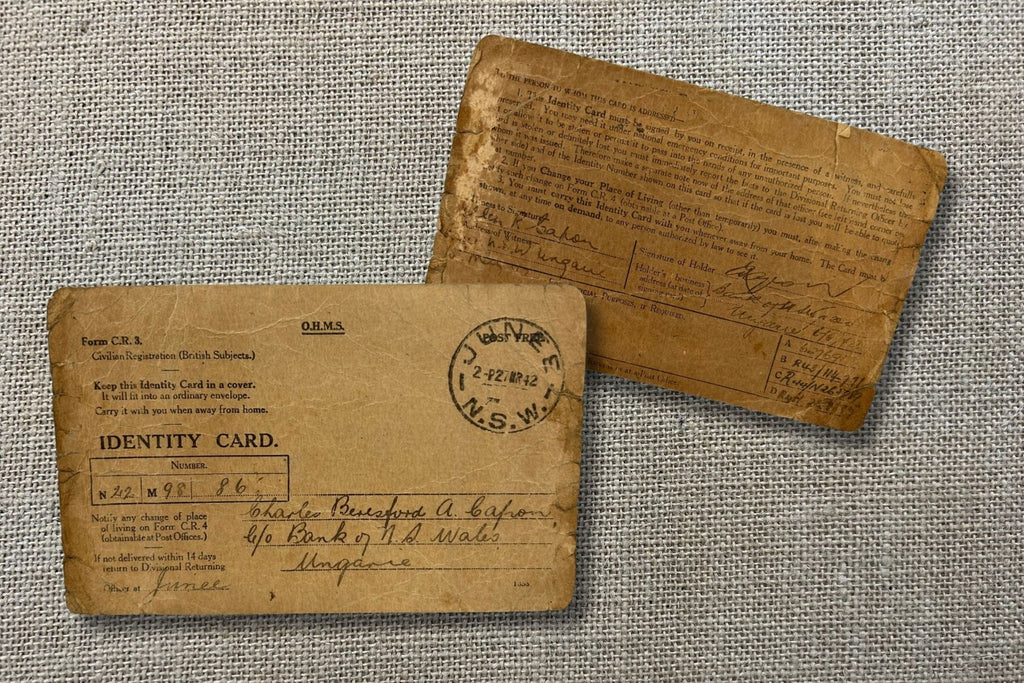 O.H.M.S.
Form C.R. 3.
Civilian Registration (British Subjects.)
POST FREE
JUNEE
2-P27MR42
N.S.W.
Keep this Identity Card in a cover.
It will fit into an ordinary envelope.
Carry it with you when away from home.
IDENTITY CARD.
NUMBER.
N 22 M 98 86
Notify any change of place
of living on Form C.R. 4
(obtainable at Post Offices.)
Charles Beresford A. Capon
C/o Bank of N.S. Wales
Ungarie
If not delivered within 14 days
return to Divisional Returning
Officer at Junee
TO THE PERSON TO WHOM THIS CARD IS ADDRESSED
1. The Identity Card must be signed by you on receipt, in the presence of a witness, and carefully
preserved. You may need it under national emergency conditions for important purposes. You must not lose
it or allow it to be stolen or permit it to pass into the hands of any unauthorized person. If nevertheless the
card is stolen or definitely lost you must immediately report the facts to the Divisional Returning Officer by
whom it was issued. Therefore make a separate note now of the address of that officer (see left hand corner on
other side) and of the Identity Number shown on this card so that if the card is lost you will be able to quote
number.
2. If you Change your Place of Living (other than temporarily) you must, after making the change
such change on Form C.R. 4 (obtainable at a Post Office).
3. You must carry this Identity Card with you whenever away from your home. The Card must be
shown, at any time on demand, to any person authorized by law to see it.
Witness to Signature
Capon
of Witness
Ungarie
Signature of Holder
Capon
Holder's business
address (at date of
signing card)
Ungarie
OFFICIAL PURPOSES, IF REQUIRED.
A
B
C
D